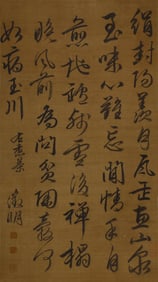 絹封陽羨月瓦缶惠山泉
至味心難忘閒情手自
煎地爐殘雪後禪榻
晚風前為問貧陶穀何
如病玉川
徵明